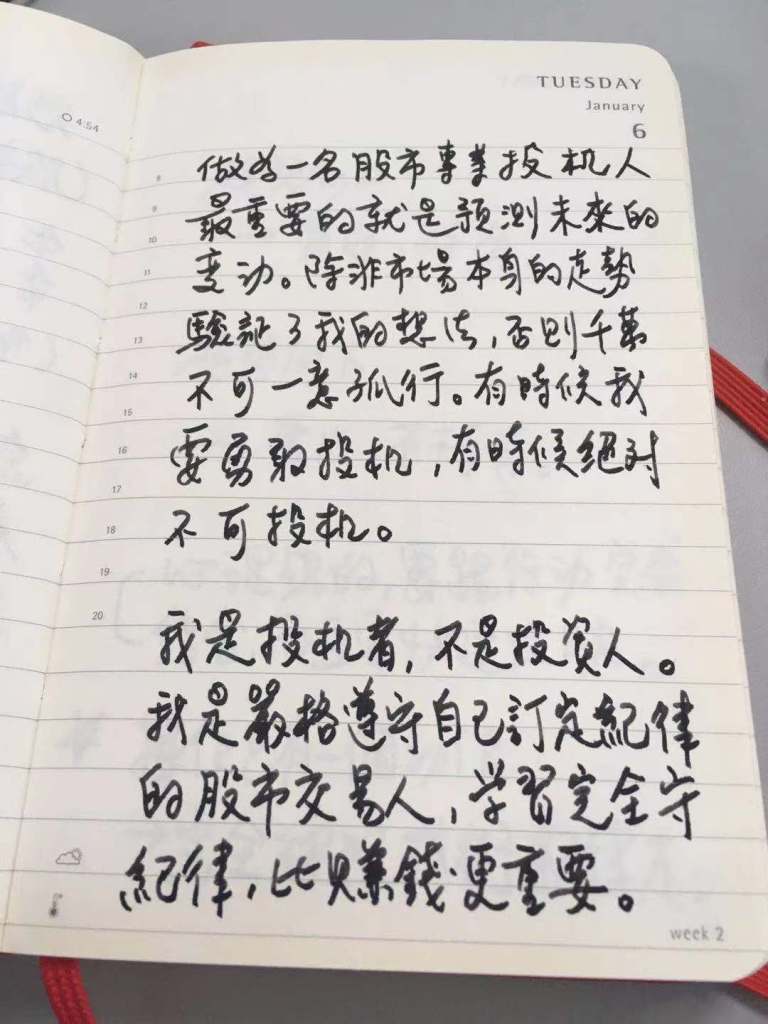 4:54
TUESDAY
January
6
8 做为一名股市專業投机人
9 最重要的就是預測未來的
10
11 变动。除非市场本身的走勢
12
13 驗証了我的想法,否则千萬
14 不可一意孤行。有時候我
15
16 要勇敢投机,有時候絕对
17
18 不可投机。
19
20
我是投机者,不是投資人。
我是嚴格遵守自己訂定紀律
的股市交易人,学習完全守
紀律,比賺錢更重要。
week 2